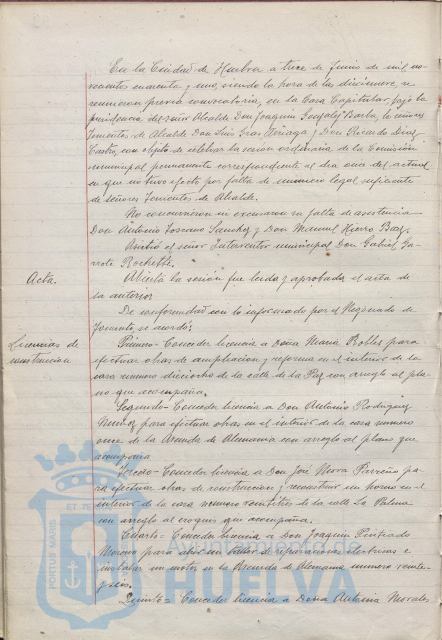 En la Ciudad de Huelva a trece de Junio de mil no-
vecientos cuarenta y uno, siendo la hora de las diecinueve, se
reunieron previa convocatoria, en la Casa Capitular bajo la
presidencia del señor Alcalde Don Joaquín González Barba, los señores
Tenientes de Alcalde Don Luis Gras y Don Ricardo Diaz
Castro, con objeto de celebrar la sesión ordinaria de la Comisión
municipal permanente correspondiente al dia once del actual
y que no tuvo efecto por falta de número legal suficiente
de señores Tenientes de Alcalde.
No concurrieron ni excusaron su falta de asistencia
Don Antonio Toscano Sanchez y Don Manuel Hierro Baz.
Asistió el señor Interventor municipal Don Gabriel Ga-
rrote Rochette.
Acta. Abierta la sesión fue leida y aprobada el acta de
la anterior
De conformidad con lo informado por el Negociado de
Fomento, se acordó:
Licencias de
construccion
Primero - Conceder licencia a Doña Maria Robles para
efectuar obras de ampliacion y reforma en el interior de la
casa numero dieciocho de la calle de la Paz con arreglo al pla-
no que acompaña.
Segundo - Conceder licencia a Don Antonio Rodriguez
Muñoz para efectuar obras en el interior de la casa numero
once de la Avenida de Alemania con arreglo al plano que
acompaña
Tercero - Conceder licencia a Don José Mora Parreño pa-
ra efectuar obras de construccion y reconstruir un horno en el
interior de la casa numero veintitres de la calle La Palma
con arreglo al croquis que acompaña.
Cuarto - Conceder licencia a Don Joaquin Peinado
Moreno para abrir un taller de reparaciones electricas e
instalar un motor en la Avenida de Alemania numero veinti-
seis.
Quinto - Conceder licencia a Doña Antonia Morales
PORTUS MARIS
ET TE
HUELVA